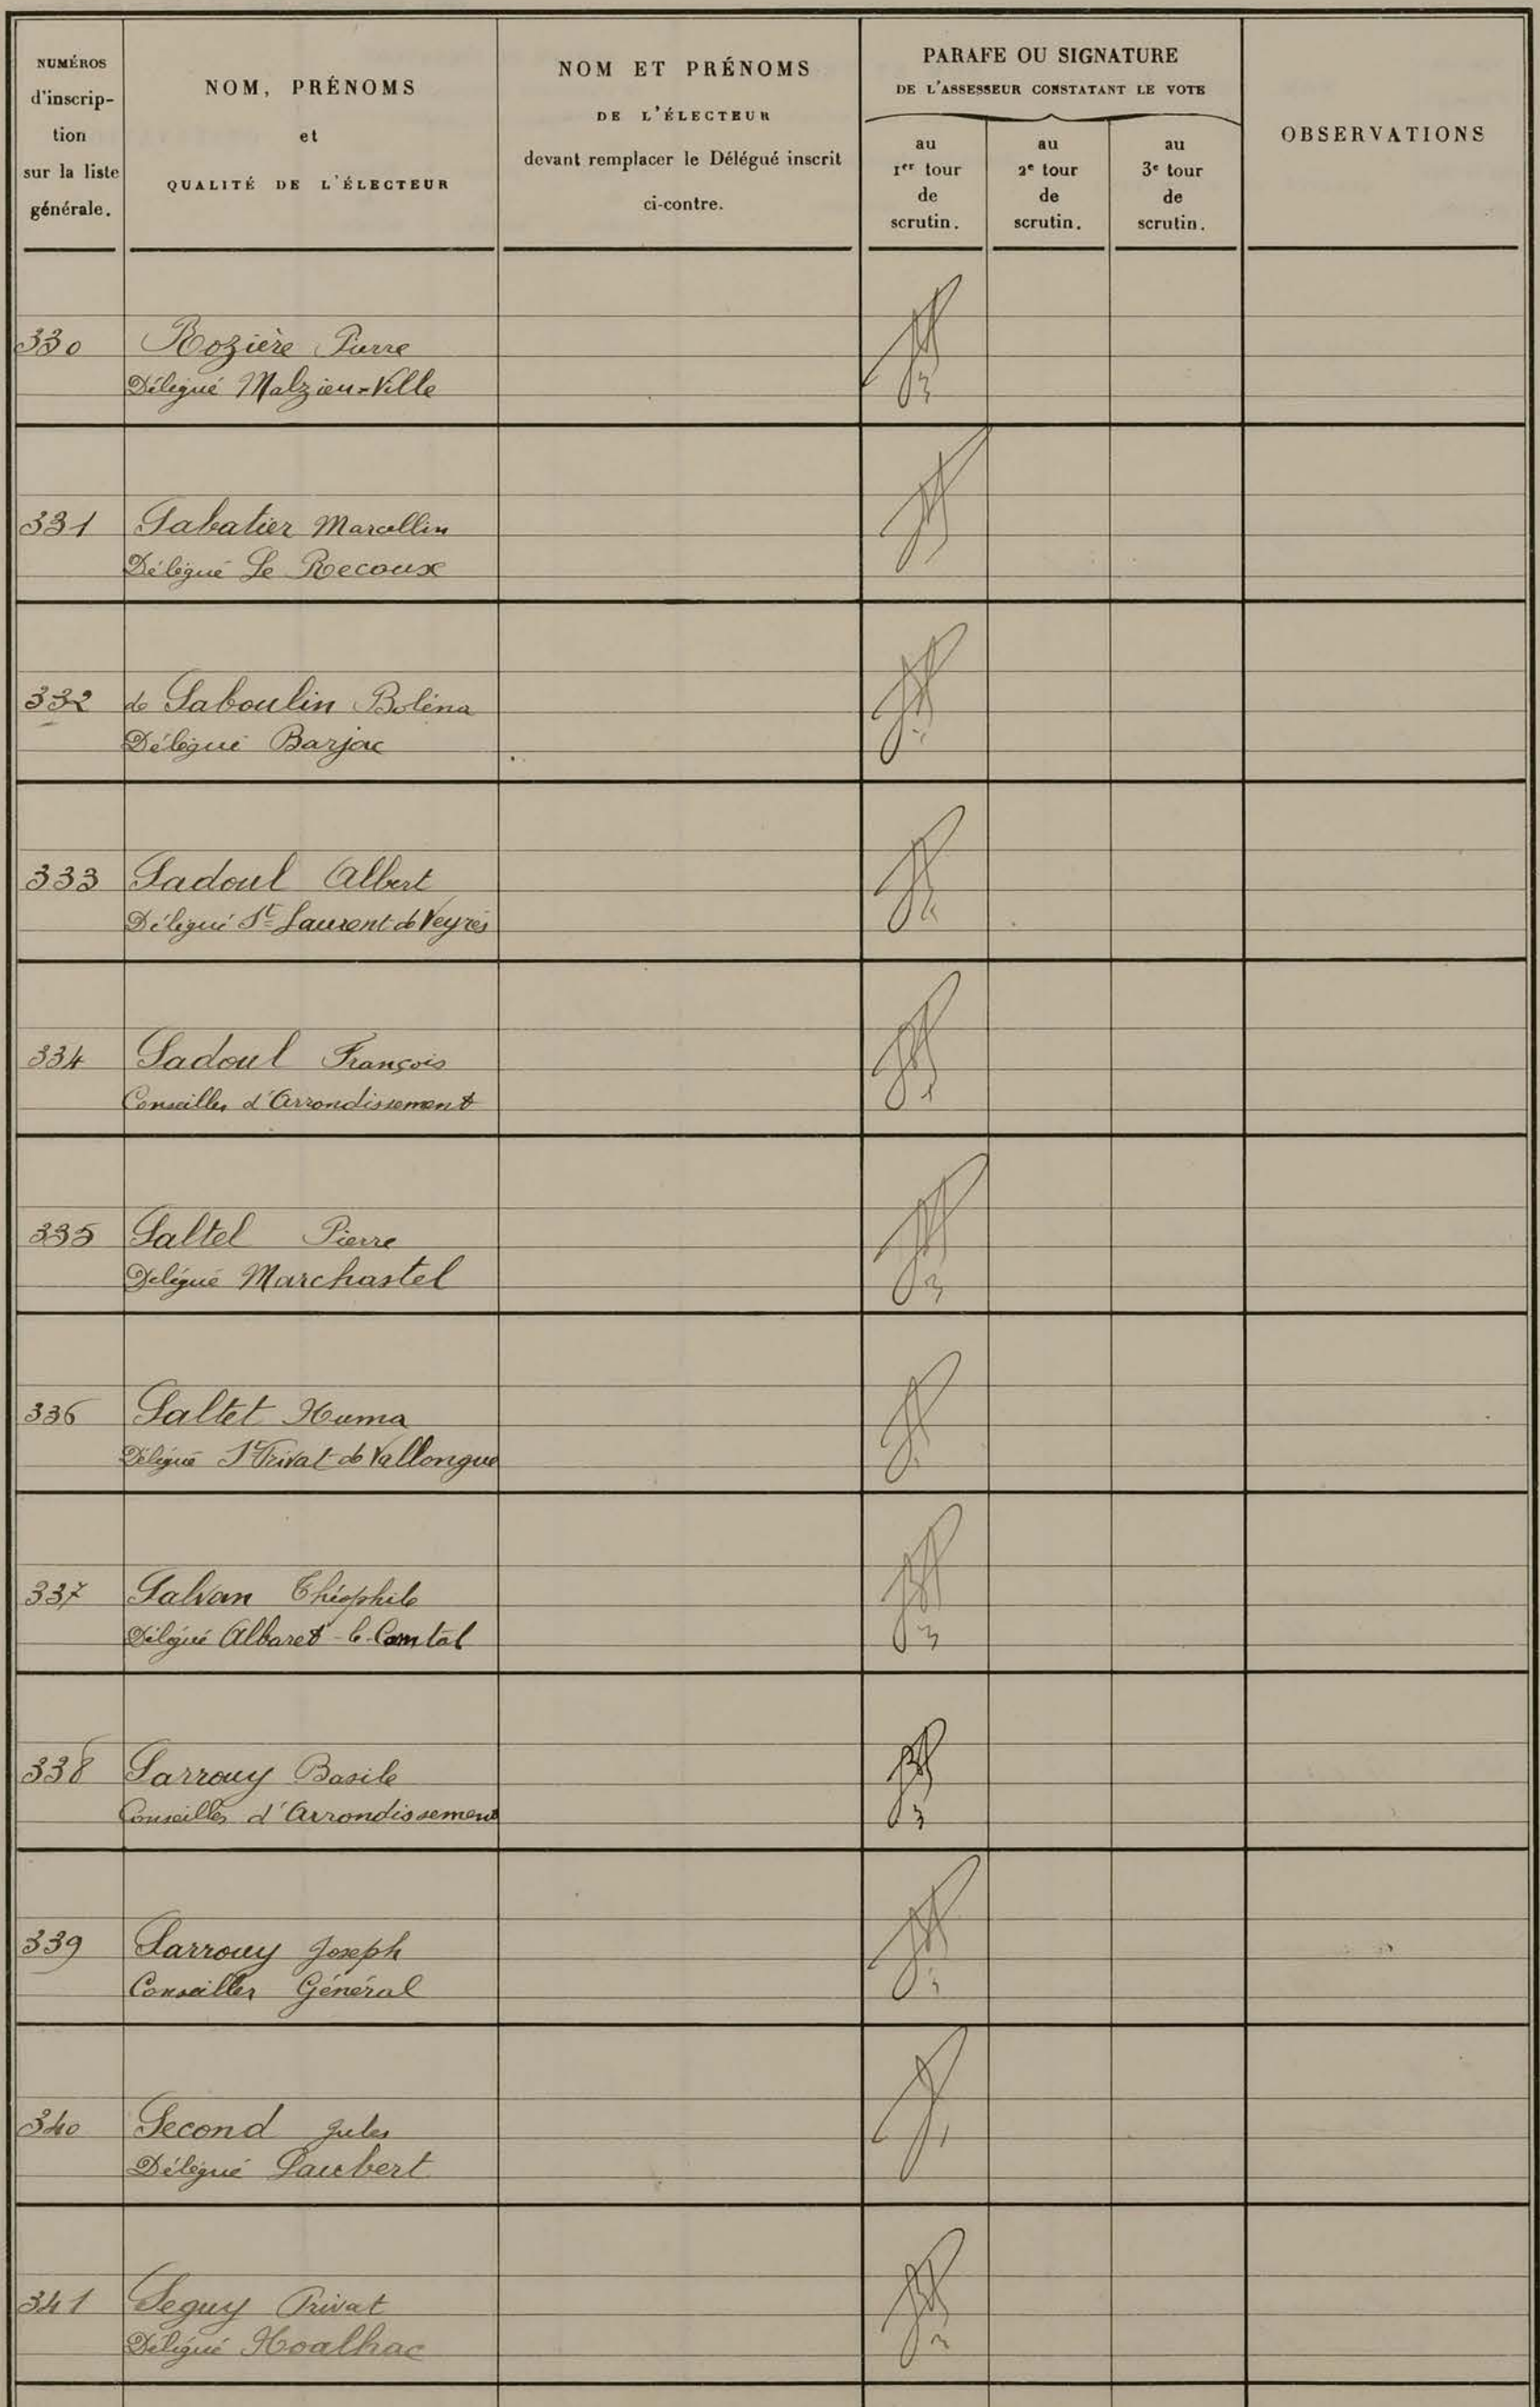 NUMÉROS
d'inscrip-
tion
sur la liste
générale.
NOM, PRÉNOMS
et
QUALITÉ DE L'ÉLECTEUR
NOM ET PRÉNOMS
DE L'ÉLECTEUR
devant remplacer le Délégué inscrit
ci-contre.
PARAFE OU SIGNATURE
DE L'ASSESSEUR CONSTATANT LE VOTE
au
1er tour
de
scrutin.
au
2e tour
de
scrutin.
au
3e tour
de
scrutin.
OBSERVATIONS
330 Rozière Pierre
Délégué Malzieu-Ville
331 Sabatier Marcellin
Délégué Le Recoux
332 de Saboulin Boléna
Délégué Barjac
333 Sadoul Albert
Délégué St Laurent de Veyrès
334 Sadoul François
Conseiller d'Arrondissement
335 Saltel Pierre
Délégué Marchastel
336 Saltet Numa
Délégué St Privat de Vallongue
337 Salvan Théophile
Délégué Albaret-le-Comtal
338 Sarrouy Basile
Conseiller d'Arrondissement
339 Sarrouy Joseph
Conseiller Général
340 Second Jules
Délégué Laubert
341 Seguy Privat
Délégué Noalhac